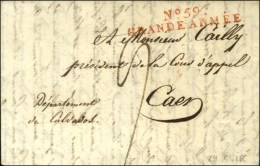 N° 59
GRANDE ARMÉE
A Monsieur Cailly
président de la Cour d'appel
Caen
Département
du Calvados.